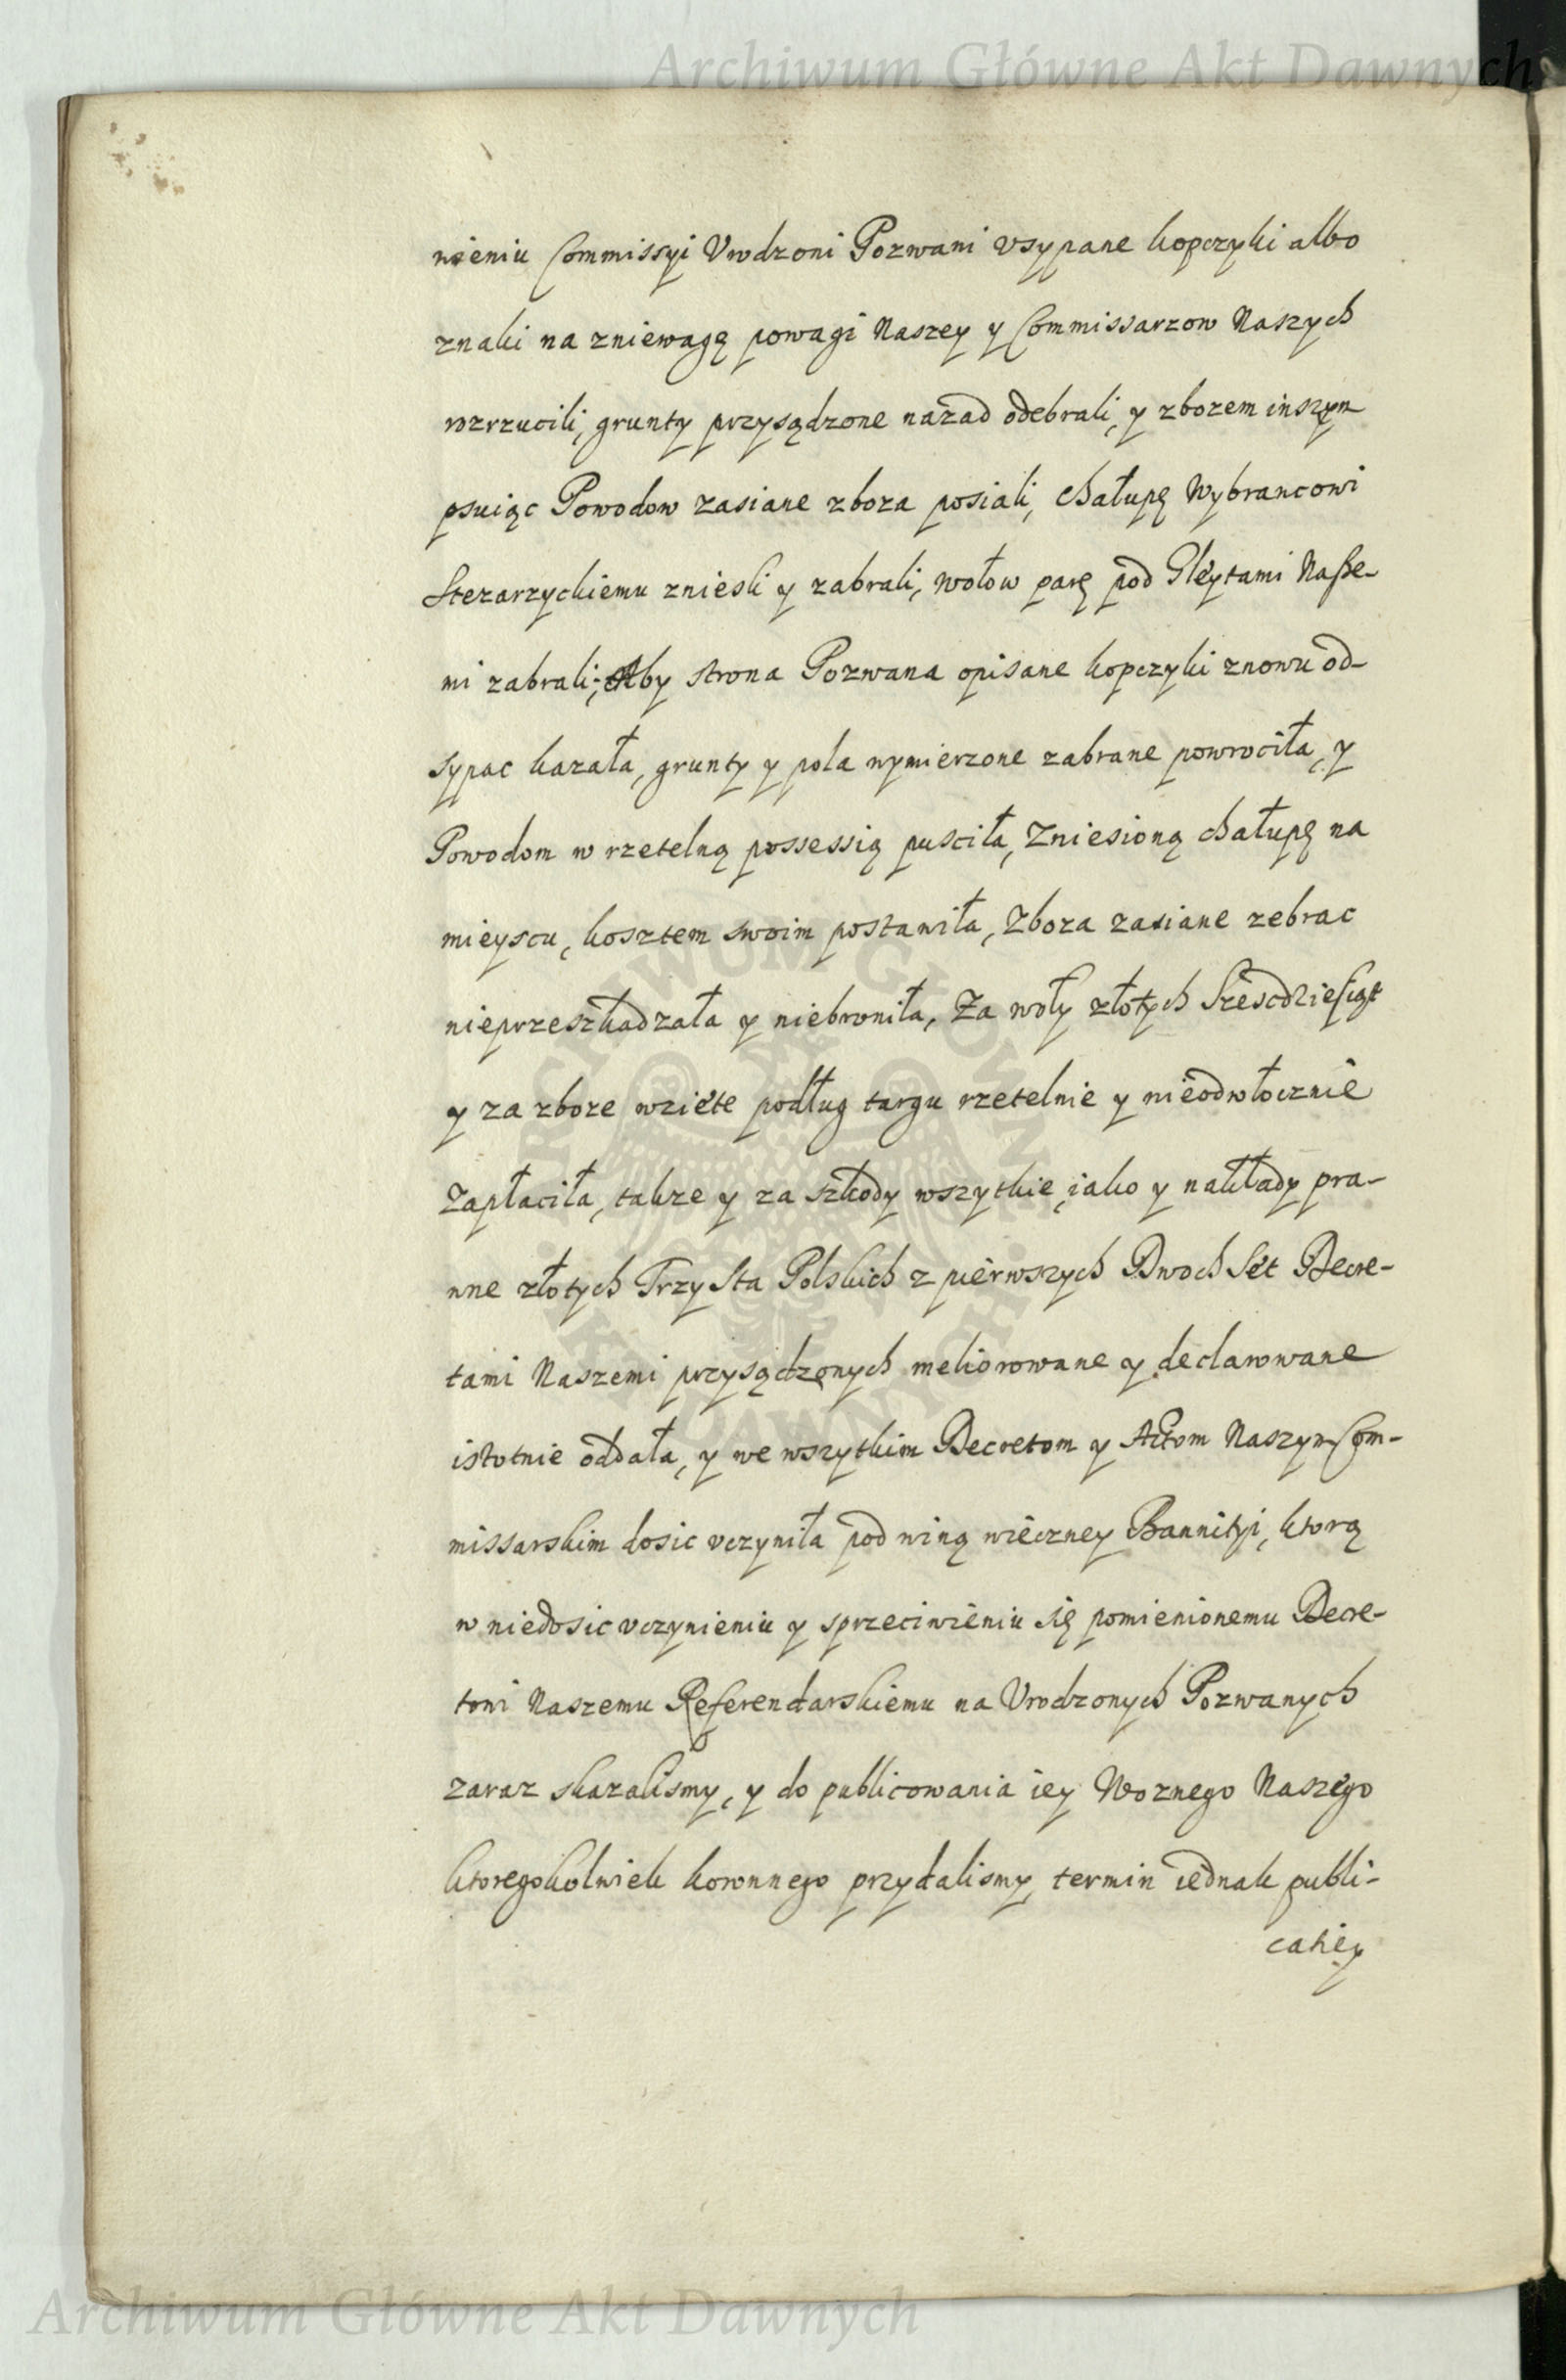 Archiwum Główne Akt Dawnych
nieniu Commissyi Vrodzoni Pozwani vsypane kopczyki albo
znaki na zniewagę powagi Naszey y Commissarzow Naszych
rozrzucili, grunty przysądzone nazad odebrali, y zbozem inszym
psuiąc Powodow zasiane zboza posiali, chałupę Wybrancowi
Stezarzyckiemu zniesli y zabrali, wołow parę pod Gleytami Nasze-
mi zabrali; Aby strona Pozwana opisane kopczyki znowu od-
sypac kazała, grunty y pola wymierzone zabrane powrociła, y
Powodom w rzetelną possessią pusciła, Zniesioną chałupę na
mieyscu, kosztem swoim postawiła, Zboza zasiane zebrac
nieprzeszkadzała y niebroniła, Za woły złotych Szescdziesiąt
y za zboze wziete podług targu rzetelnie y nieodwłocznie
Zapłaciła, takze y za szkody wszytkie, iako y nakłady pra-
wne złotych Trzysta Polskich z pierwszych Dwoch Set Decre-
tami Naszemi przysądzonych meliorowane y declarowane
istotnie oddała, y we wszytkim Decretom y Aktom Naszym Com-
missarskim dosic vczyniła pod winą wieczney Bannityi, ktorą
w niedosic vczynieniu y sprzeciwieniu się pomienionemu Decre-
towi Naszemu Referendarskiemu na Vrodzonych Pozwanych
zaraz skazalismy, y do publicowania iey Woznego Naszego
ktoregokolwiek koronnego przydalismy, termin iednak publi-
catiey
Archiwum Główne Akt Dawnych